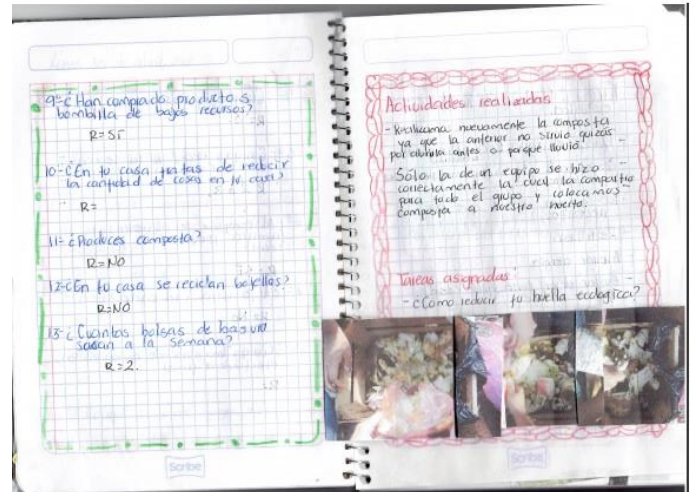 9-¿Han comprado productos
bombilla de bajos recursos?
R=Sí
10-¿En tu casa tratas de reducir
la cantidad de cosas en tu casa?
R=
11-¿Produces composta?
R=NO
12-¿En tu casa se reciclan botellas?
R=NO
13-¿Cuántas bolsas de basura
sacan a la semana?
R=2.
Scribe
Actividades realizadas
-Realizamos nuevamente la composta
ya que la anterior no sirvio quizás
por abrirla antes o porqué lluvio.
Sólo la de un equipo se hizo
correctamente la cual la compartio
para todo el grupo y colocamos
composta a nuestro huerto.
Tareas asignadas:
-¿Cómo reducir tu huella ecologica?
Scribe